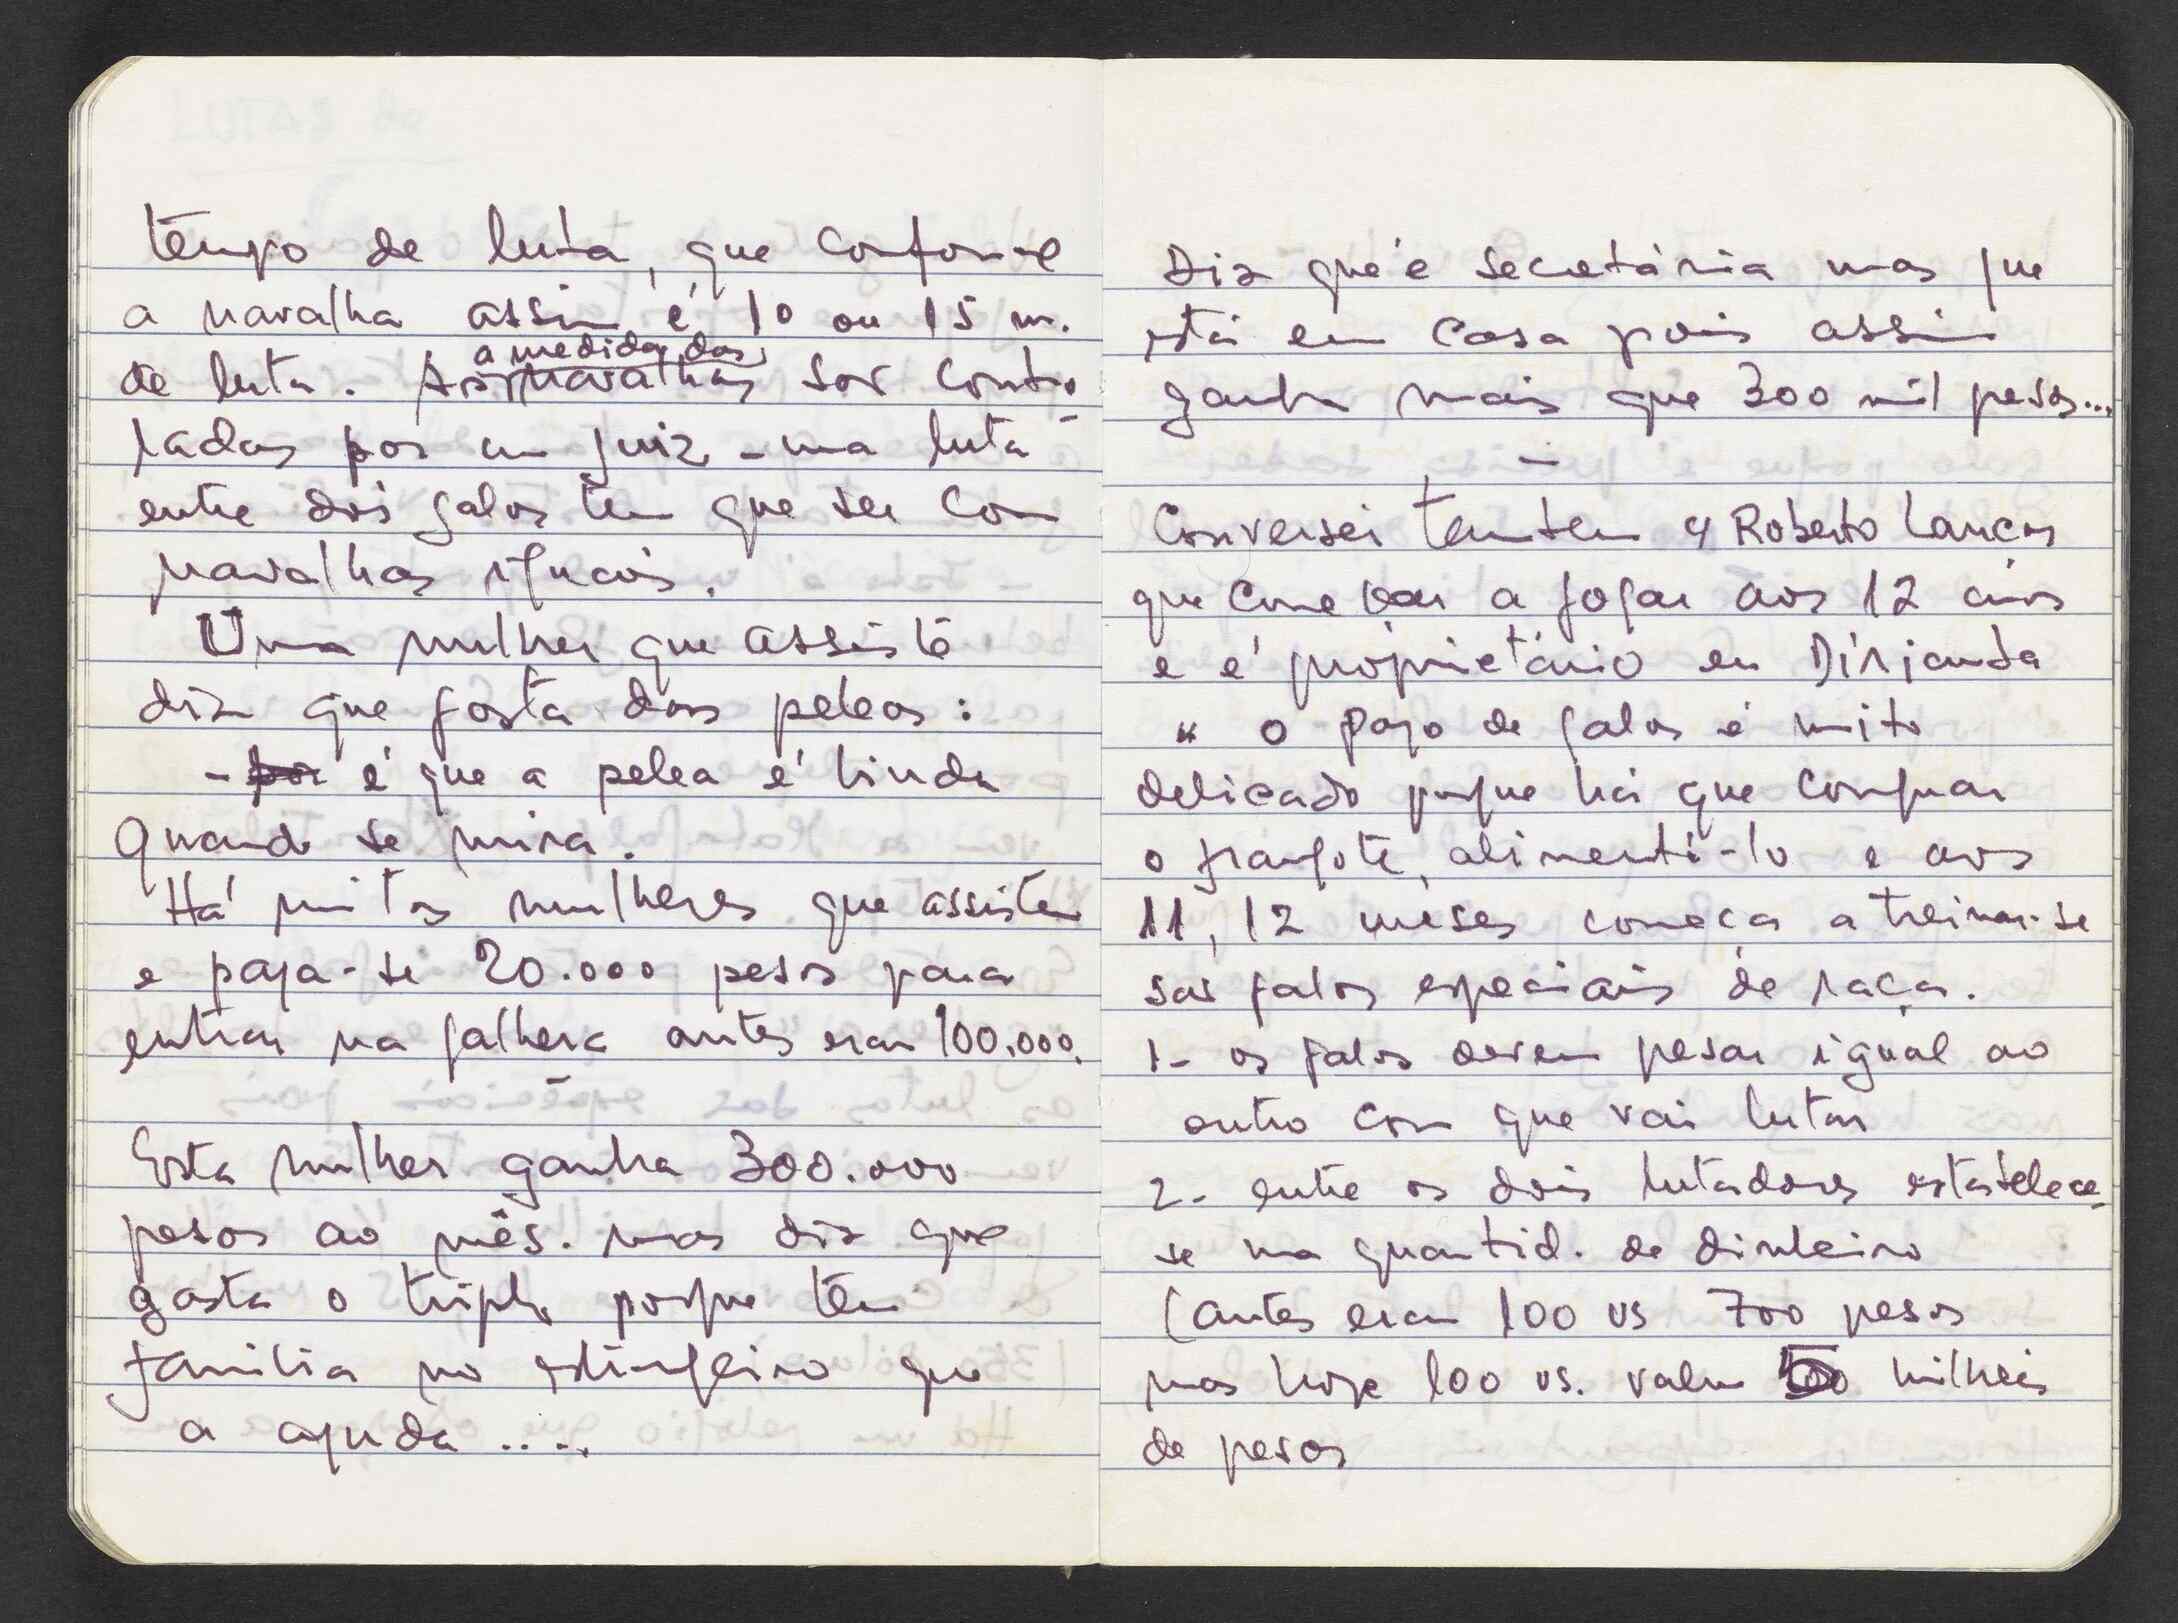 tempo de luta, que conforme
a navalha assim é 10 ou 15 m.
de luta. As a medida das navalhas são contro
ladas por um juiz - uma luta
entre dois galos tem que ser com
navalhas iguais.
Uma mulher que assiste
diz que gosta das peleas:
- por é que a pelea é linda
quando se mira.
Há muitas mulheres que assistem
e paga-se 20.000 pesos para
entrar na galhera antes eram 100.000.
Esta mulher ganha 300.000
pesos ao mês. mas diz que
gasta o triplo porque tem
família no estrangeiro que
a ajuda ....
Diz que é secretária mas que
está em casa pois assim
ganha mais que 300 mil pesos...
-
Conversei também c/ Roberto
que começou a jogar aos 12 anos
e é proprietário em Diriamba
" o jogo de galos é muito
delicado porque há que comprar
o frangote, alimentá-lo e aos
11, 12 meses começa a treinar-se
são galos especiais de raça.
1- os galos devem pesar igual ao
outro com que vai lutar
2- entre os dois lutadores estabelece-
se uma quantid. de dinheiro
(antes eram 100 US 700 pesos
mas hoje 100 US. valem milhões
de pesos